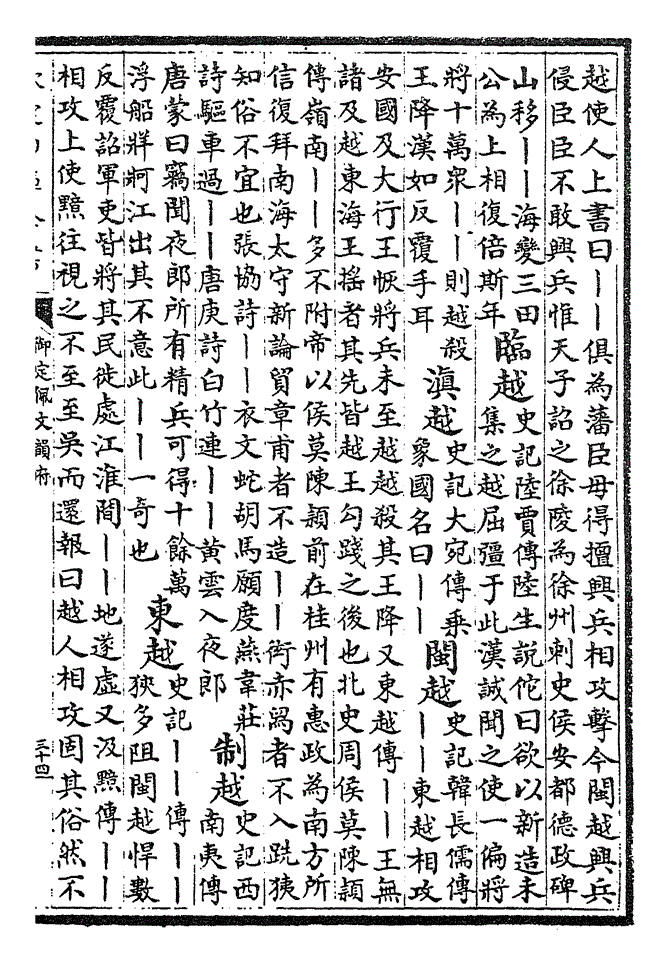 越使人上書曰丨丨俱為藩臣毋得擅興兵相攻擊今閩越興兵
侵臣臣不敢興兵惟天子詔之徐陵為徐州刺史侯安都德政碑
山移丨丨海變三田
公為上相復倍斯年
臨越
史記陸賈傳陸生說佗曰欲以新造未
集之越屈彊于此漢誠聞之使一偏將
將十萬衆丨丨則越殺
王降漢如反覆手耳
滇越
史記大宛傳乘
象國名曰丨丨
閩越
史記韓長儒傳
丨丨東越相攻
安國及大行王恢將兵未至越越殺其王降又東越傳丨丨王無
諸及越東海王搖者其先皆越王勾踐之後也北史周侯莫陳穎
傳嶺南丨丨多不附帝以侯莫陳穎前在桂州有惠政為南方所
信復拜南海太守新論貿章甫者不造丨丨衒赤舄者不入跣㹫
知俗不宜也張協詩丨丨衣文蛇胡馬願度燕韋莊
詩驅車過丨丨唐庚詩白竹連丨丨黃雲入夜郎
制越
史記西
南夷傳
唐蒙曰竊聞夜郎所有精兵可得十餘萬
浮船牂牁江出其不意此丨丨一奇也
東越
史記丨丨傳丨丨
狹多阻閩越悍數
反覆詔軍吏皆將其民徙處江淮間丨丨地遂虛又汲黯傳丨丨
相攻上使黯往視之不至至吳而還報曰越人相攻固其俗然不
御定佩文韻府
三十四